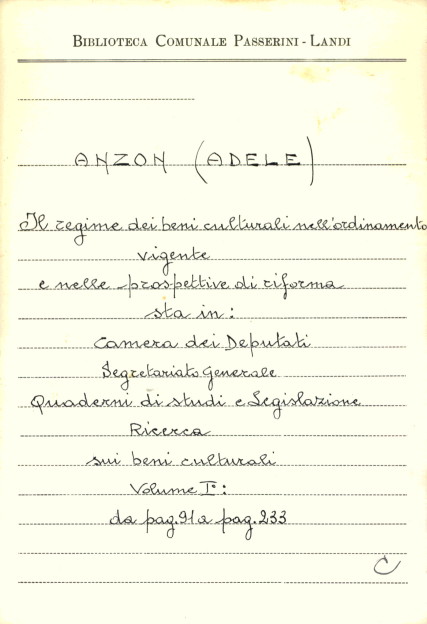 BIBLIOTECA COMUNALE PASSERINI - LANDI
ANZON (ADELE)
Il regime dei beni culturali nell'ordinamento
vigente
e nelle prospettive di riforma
sta in:
Camera dei Deputati
Segretariato Generale
Quaderni di studi e Legislazione
Ricerca
sui beni culturali
Volume I°:
da pag. 91 a pag. 233
C